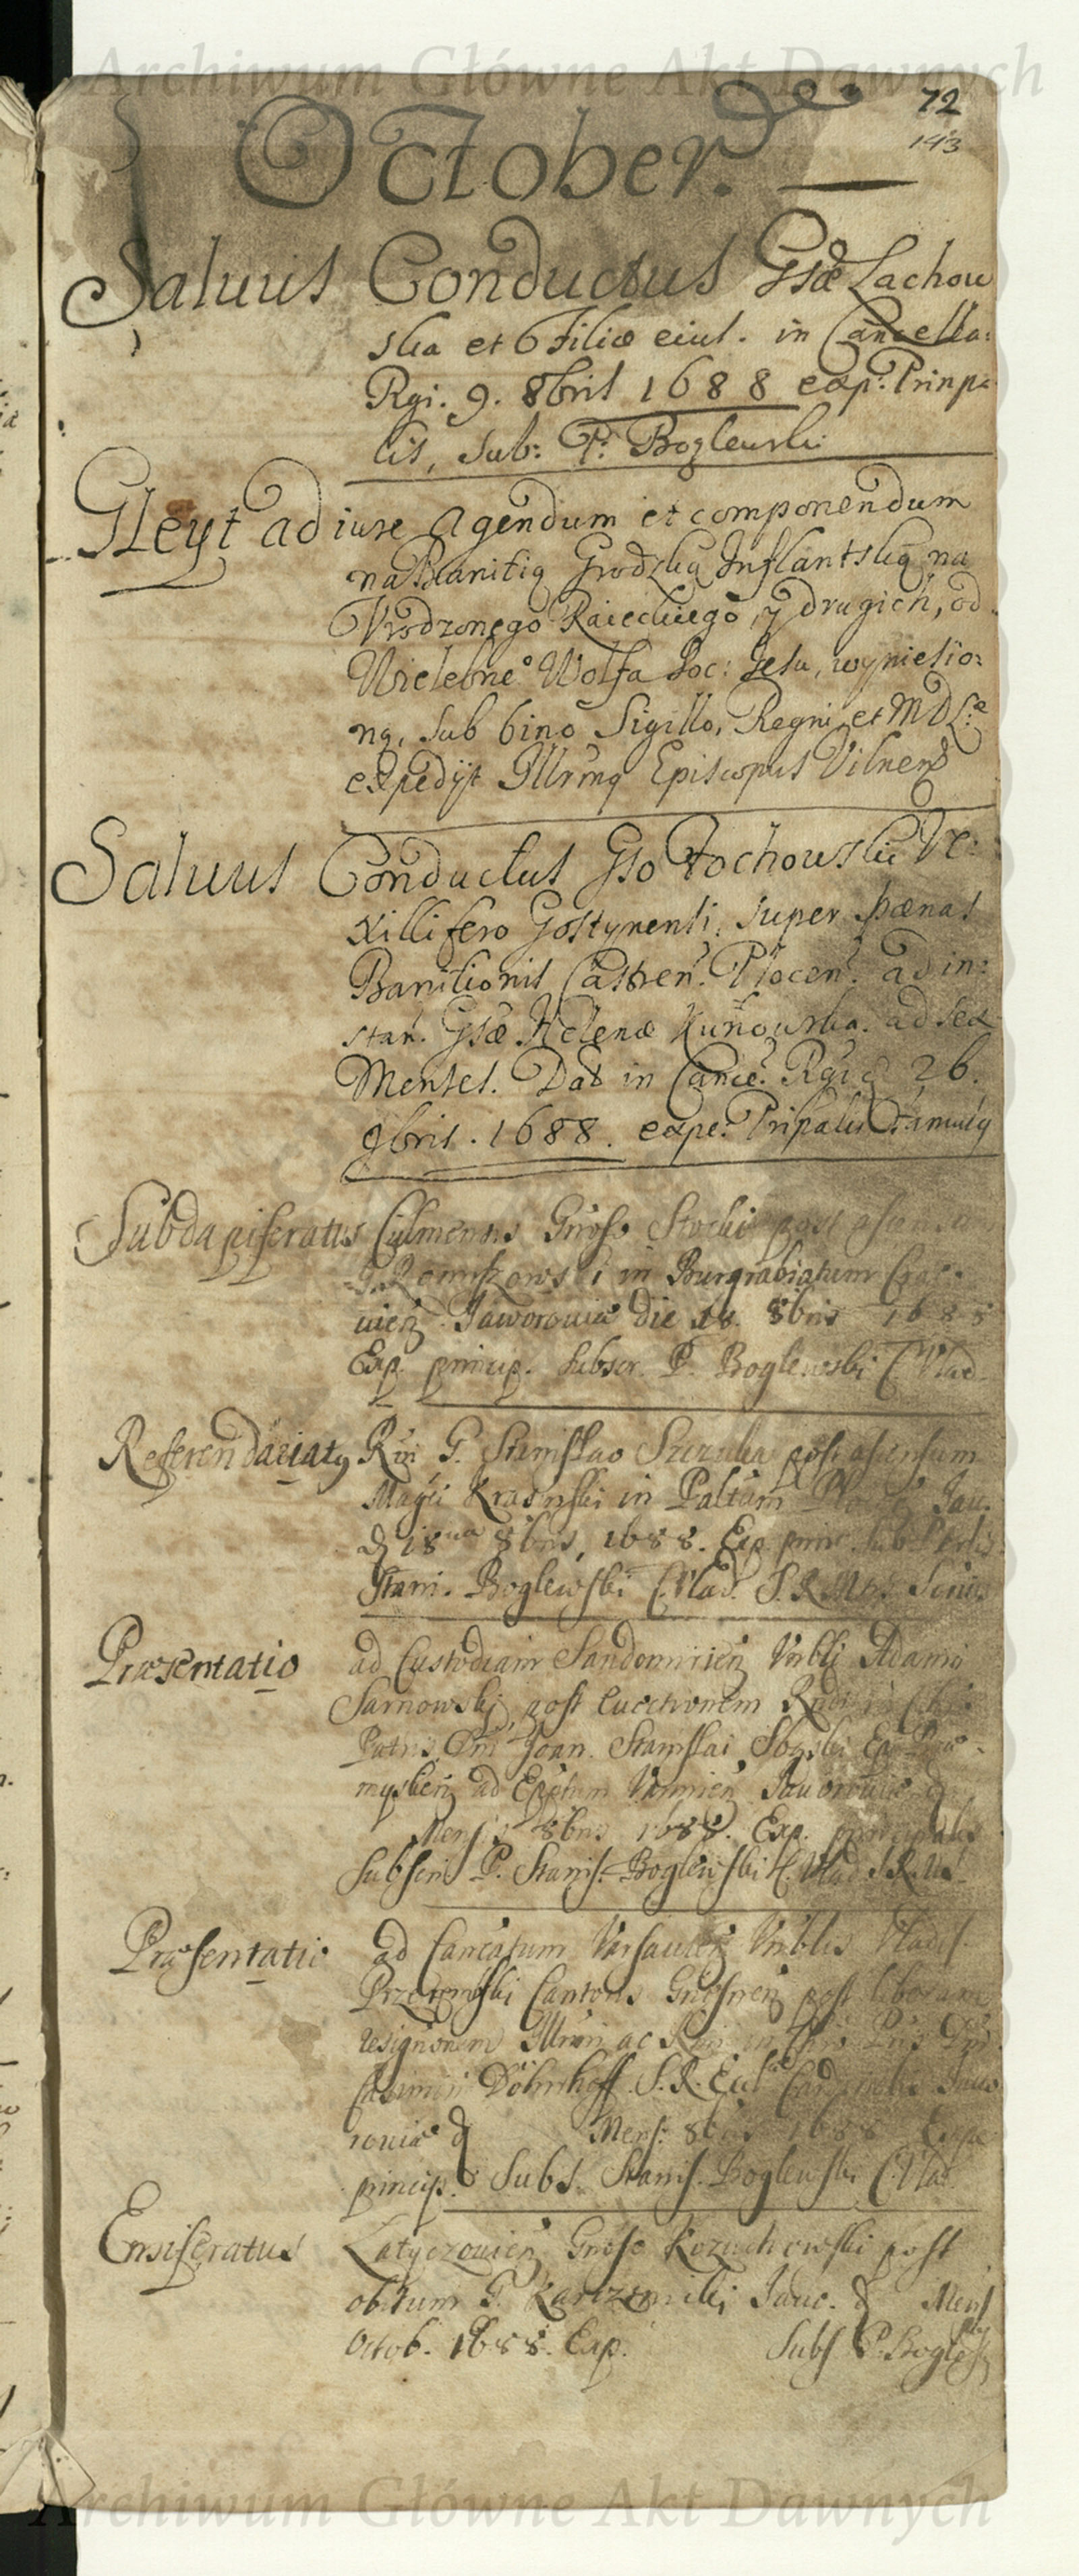 Archiwum Główne Akt Dawnych
72
143
October.
Salvus Conductus Gsæ Lachow
ska et Filiæ eius. in Cancella:
Rgi. 9. 8bris 1688 exp: Prinpa
lis, Sub: P: Boglewski
Gleyt ad iure agendum et componendum
na Banitią Grodzką Inflantską na
Vrodzonego Raieckiego, y drugich, od
Wielebneo Wolfa Soc: Jesu, wyniesio:
ną, sub bino Sigillo, Regni et MDL:æ
expedijt Illrmq Episcopus Vilnens
Salvus Conductus Gso Tochowski Ve:
xillifero Gostynensi, super pænas
Banitionis Castren. Plocen. ad in:
stan. Gsæ Helenæ Kunowska. ad sex
Menses. Dat in Cance. Rgi d 26.
9bris. 1688. expe: Pripalis
Subdapiferatus Culmensis Groso Stocki post
in Burgrabiatum Crac.
vien. Jaworoviæ die 18. 8bris 1688
Exp. princip. Subscr. P. Boglewski C. Vlad.
Referendariatq Rni G. Stanislao Szczuka post asensum
Magci Krasinski in Paltum Jau.
d 18va 8bris, 1688. Exp. prin. Sub
Stani. Boglewski C. Vlad. S. R. Mtis
Præsentatio ad Custodiam Sandomirien Vnbli Adamo
Sarnowski, post
Patris Dni Joan. Stanislai Sbąski Ep Præ-
myslien ad Epptum Varmien Javoroviæ d
Mensis 8bris 1688. Exp. principalis
Subscri P. Stanis. Boglewski C. Vlad S. R. M
Præsentatio ad Cancatum Varsavien Vnblis Vladis.
Przyrembski Cantoris Gnesnen post liberam
resignonem Illrmi ac
Casimiri Döhnhoff. S. R. Eccl Cardinalis Jawo
roviæ d Mens. 8bris 1688 Expe
princip. Subs. Stanis. Boglewski C. Vlad.
Ensiferatus Latyczovien Groso Kozuchowski post
obitum G. Jauc. d Mens
Octob. 1688. Exp. Subs P. Boglews
Archiwum Główne Akt Dawnych